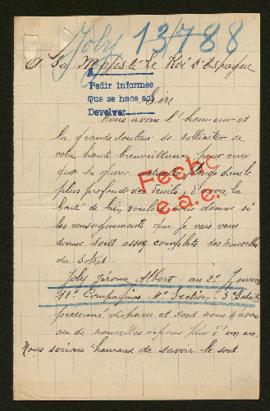 Joly 13788
A Sa Majesté le Roi d'Espagne
Pedir informes
Que se haga así
Devolver
Sire
Nous avons l'honneur et
la grande douleur de solliciter de
votre haute bienveillance pour ceux
que la guerre plonge dans le
plus profond des deuils, d'avoir la
bonté de bien vouloir nous donner si
les renseignements que je vais vous
donner sont assez complets des nouvelles
du soldat.
Fecho
e.a.e.
Joly Albert au 2e Zouaves
18e Compagnie 4e Section
prénommé Zouave et dont nous n'avons
eu de nouvelles depuis plus d'un an.
Nous serions heureux de savoir le sort